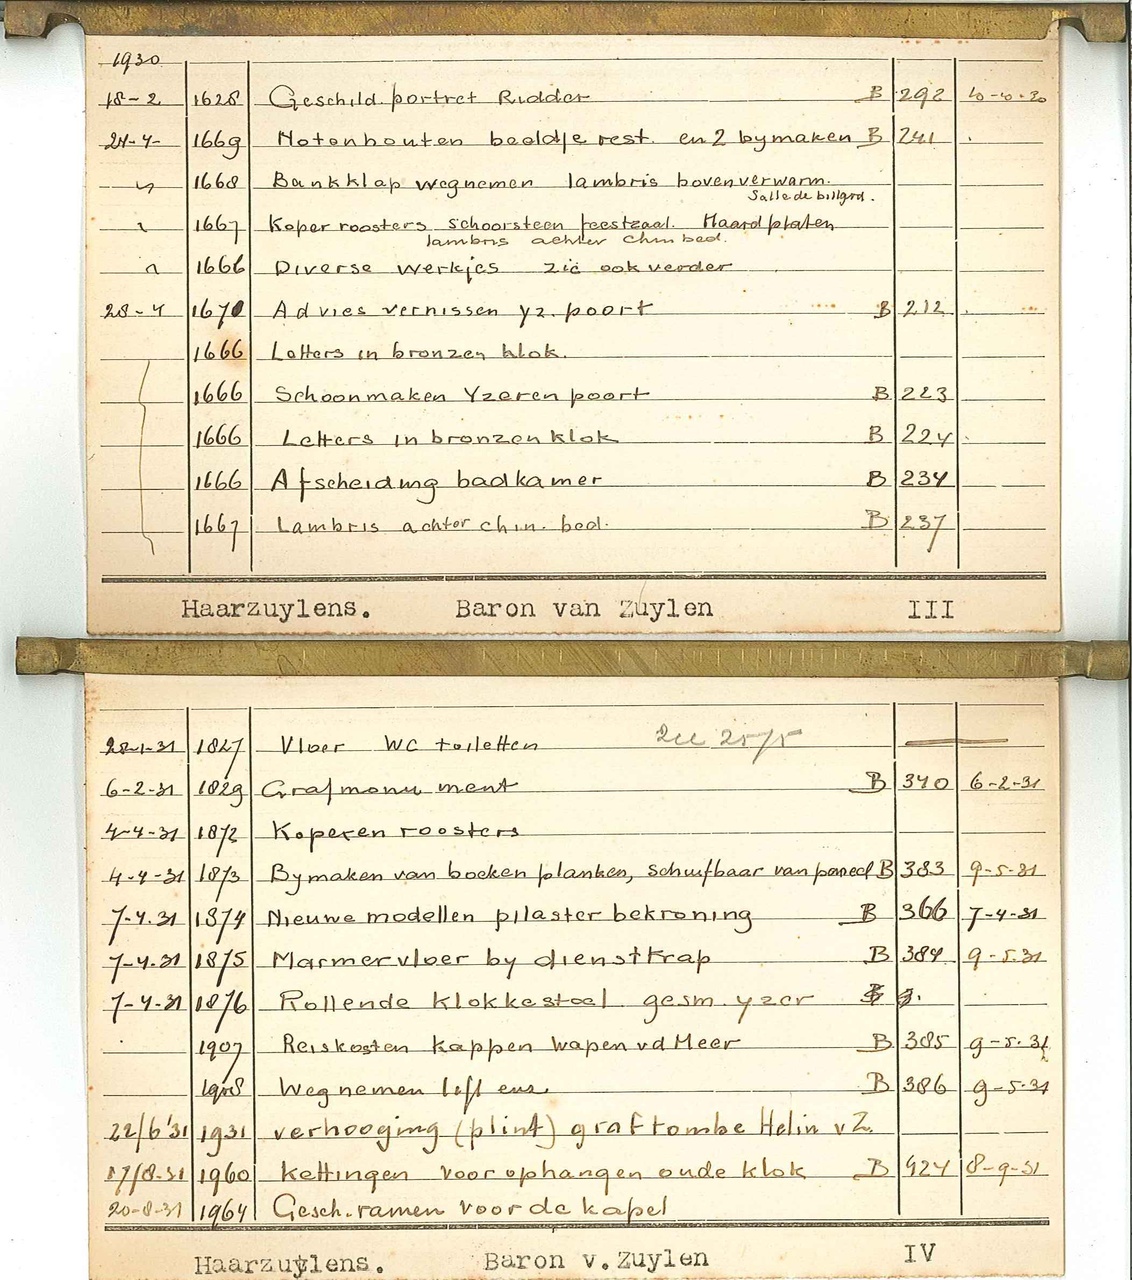 1930
18-2 1628 Geschild. portret Ridder B 292 10-4-30
24-4- 1669 Notenhouten beeldje rest. en 2 bymaken B 241
" 1668 Bankklap wegnemen lambris boven verwarm.
Salle de billard.
" 1667 Koper roosters schoorsteen feestzaal. Haardplaten
lambris achter chin bed.
" 1666 Diverse werkjes zie ook verder
28-4 1670 Advies vernissen yz. poort B 212
1666 Letters in bronzen klok.
1666 Schoonmaken Yzeren poort B 223
1666 Letters in bronzen klok B 224
1666 Afscheiding badkamer B 234
1667 Lambris achter chin. bed. B 237
Haarzuylens. Baron van Zuylen III
28-1-31 1827 Vloer WC toiletten 25/5
6-2-31 1829 Grafmonument B 340 6-2-31
4-4-31 1872 Koperen roosters
4-4-31 1873 Bymaken van boeken planken, schuifbaar van paneel B 383 9-5-31
7-4.31 1874 Nieuwe modellen pilaster bekroning B 366 7-4-31
7-4.31 1875 Marmervloer by diensttrap B 384 9-5.31
7-4-31 1876 Rollende klokkestoel gesm. yzer B
1907 Reiskosten kappen wapen vd Meer B 385 9-5.31
1908 Wegnemen lift enz. B 386 9-5-31
22/6'31 1931 verhooging (plint) graftombe Helin v Z.
17/8-31 1960 Kettingen voor ophangen oude klok B 424 8-9-31
20-8-31 1964 Gesch. ramen voor de kapel
Haarzuylens. Baron v. Zuylen IV